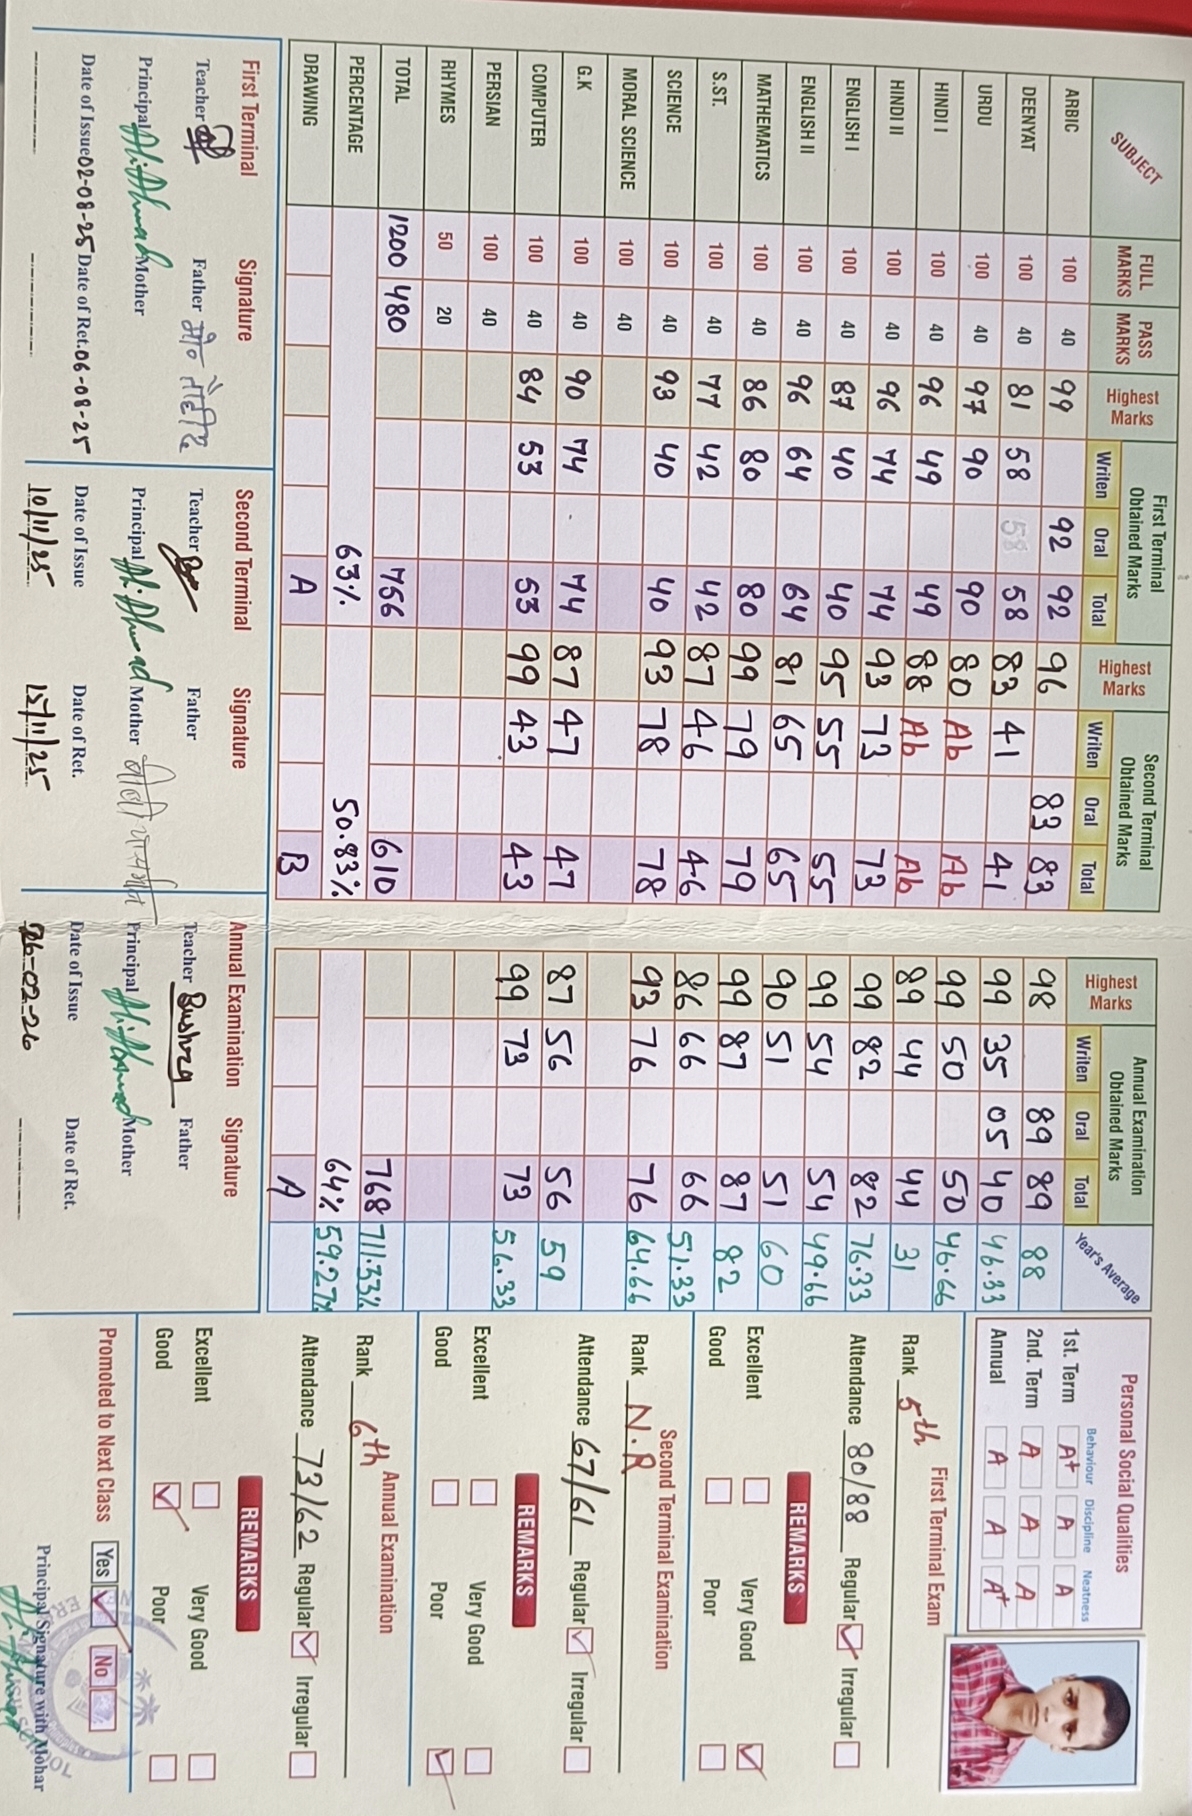 SUBJECT FULL MARKS PASS MARKS Highest Marks First Terminal Obtained Marks Writen Oral Total Highest Marks Second Terminal Obtained Marks Writen Oral Total Highest Marks Annual Examination Obtained Marks Writen Oral Total Year's Average
ARBIC 100 40 99 92 92 96 83 83 98 89 89 88
DEENYAT 100 40 81 58 58 58 83 41 41 99 35 05 40 46.33
URDU 100 40 97 90 90 80 Ab Ab 99 50 50 46.66
HINDI I 100 40 96 49 49 88 Ab Ab 89 44 44 31
HINDI II 100 40 96 74 74 93 73 73 99 82 82 76.33
ENGLISH I 100 40 87 40 40 95 55 55 99 54 54 49.66
ENGLISH II 100 40 96 64 64 81 65 65 90 51 51 60
MATHEMATICS 100 40 86 80 80 99 79 79 99 87 87 82
S.ST. 100 40 77 42 42 87 46 46 86 66 66 51.33
SCIENCE 100 40 93 40 40 93 78 78 93 76 76 64.66
MORAL SCIENCE 100 40
G.K 100 40 90 74 74 87 47 47 87 56 56 59
COMPUTER 100 40 84 53 53 99 43 43 99 73 73 56.33
PERSIAN 100 40
RHYMES 50 20
TOTAL 1200 480 756 610 768 711.33%
PERCENTAGE 63% 50.83% 64% 59.27%
DRAWING A B A
First Terminal Signature
Teacher Father
Principal Ali Ahmad Mother
Date of Issue 02-08-25 Date of Ret. 06-08-25
Second Terminal Signature
Teacher Father
Principal Ali Ahmad Mother
Date of Issue Date of Ret.
10/11/25 15/11/25
Annual Examination Signature
Teacher Bushra Father
Principal Ali Ahmad Mother
Date of Issue Date of Ret.
26-02-26
Personal Social Qualities
Behaviour Discipline Neatness
1st. Term A+ A A
2nd. Term A A A
Annual A A A+
First Terminal Exam
Rank 5th
Attendance 80/88 Regular Irregular
REMARKS
Excellent Very Good
Good Poor
Second Terminal Examination
Rank N.R
Attendance 67/61 Regular Irregular
REMARKS
Excellent Very Good
Good Poor
Annual Examination
Rank 6th
Attendance 73/62 Regular Irregular
REMARKS
Excellent Very Good
Good Poor
Promoted to Next Class Yes No
Principal Signature with Mohar